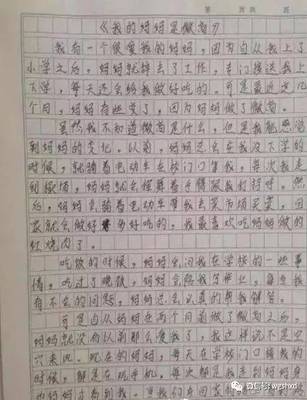 第 页 共 页
《我的妈妈是微商》
我有一个很爱我的妈妈，因为自从我上了
小学之后，妈妈就辞去了工作，专门接送我上
下学，每天还会给我做好吃的。可是最近这几
个月，妈妈有些变了，因为妈妈做了微商。
虽然我不知道微商是什么，但是我能感觉
到妈妈的变化。以前，妈妈还会在我没下学的
时候，就骑着电动车在校门口等我，每次我走
到校门，妈妈就会摆着手跟我打招呼。然
后，妈妈会骑着电动车带我去菜市场买菜，回
家就会做好多好吃的，我最喜欢吃妈妈做的
红烧肉了。
吃饭的时候，妈妈会问我在学校的一些事
情，吃过了晚饭，妈妈会陪我写作业，每当我
有不会的问题，妈妈还会认真的帮我解答。
可是自从妈妈在两个月前做了微商之后，
妈妈就没有从前那么爱我了，我这样说不是空
穴来风。现在的妈妈，每天在学校门口接我的
时候，都是在玩手机，每次我都是走到妈妈身
微信号：wgshxxl